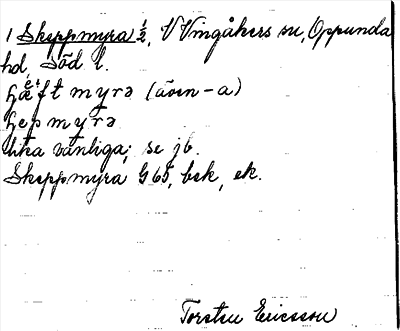 1 Skeppmyra 1/2, V Vingåkers sn, Oppunda
hd, Söd l.
myrə (även -a)
myrə
lika vanliga; se jb.
Skeppmyra G 65, bsk, ek.
Torsten Ericsson